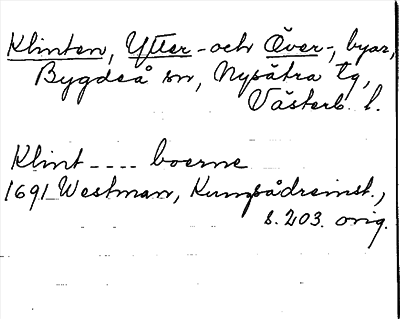 Klinten, Ytter- och Över-, byar,
Bygdeå sn, Nysätra tg,
Västerb. l.
Klint---- boerne
1691 Westman, Kunsådreinst.,
s. 203. orig.